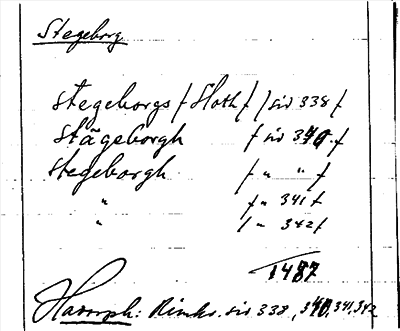 Stegeborg
Stegeborgs /Sloth/ /sid 338/
Stägeborgh / sid 340./
Stegeborgh / " " /
" /" 341/
" /" 342/
1487
: Rimkr. sid 338, 340, 341, 342